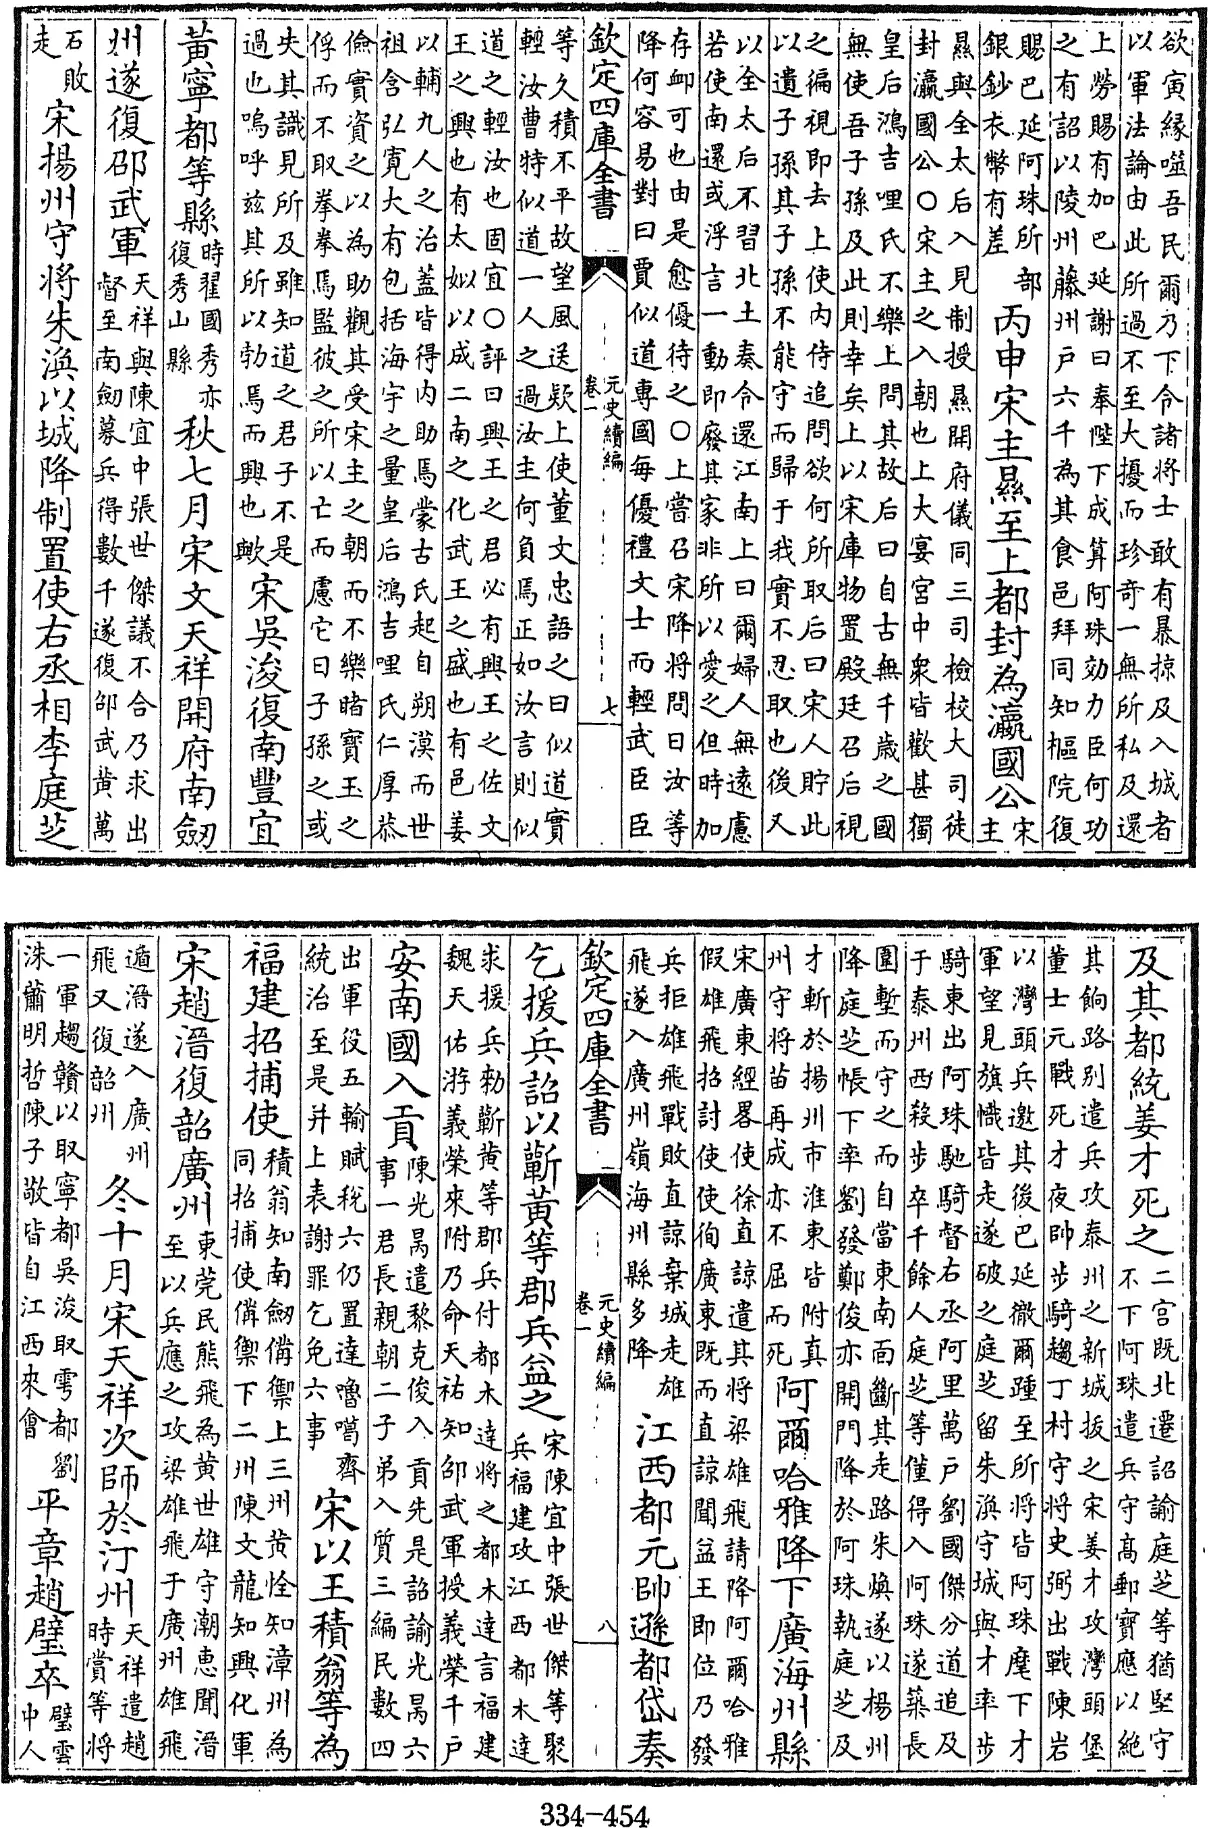 欲寅緣噬吾民爾乃下令諸將士敢有暴掠及入城者
以軍法論由此所過不至大擾而珍奇一無所私及還
上勞賜有加巴延謝曰奉陛下成算阿珠効力臣何功
之有詔以陵州藤州戶六千為其食邑拜同知樞院復
賜巴延阿珠所部
銀鈔衣幣有差
丙申宋主㬎至上都封為瀛國公
宋
主
㬎與全太后入見制授㬎開府儀同三司檢校大司徒
封瀛國公〇宋主之入朝也上大宴宮中衆皆歡甚獨
皇后鴻吉哩氏不樂上問其故后曰自古無千歲之國
無使吾子孫及此則幸矣上以宋庫物置殿廷召后視
之徧視即去上使内侍追問欲何所取后曰宋人貯此
以遺子孫其子孫不能守而歸于我實不忍取也後又
以全太后不習北土奏令還江南上曰爾婦人無遠慮
若使南還或浮言一動即廢其家非所以愛之但時加
存䘏可也由是愈優待之〇上嘗召宋降將問曰汝等
降何容易對曰賈似道專國每優禮文士而輕武臣臣
欽定四庫全書
元史續編
卷一
七
等久積不平故望風送欵上使董文忠語之曰似道實
輕汝曹特似道一人之過汝主何負焉正如汝言則似
道之輕汝也固宜〇評曰興王之君必有興王之佐文
王之興也有太姒以成二南之化武王之盛也有邑姜
以輔九人之治蓋皆得内助焉蒙古氏起自朔漠而世
祖含弘寬大有包括海宇之量皇后鴻吉哩氏仁厚恭
儉實資之以為助觀其受宋主之朝而不樂睹寶玉之
俘而不取拳拳焉監彼之所以亡而慮它日子孫之或
失其識見所及雖知道之君子不是
過也嗚呼兹其所以勃焉而興也歟
宋吳浚復南豐宜
黃寧都等縣
時翟國秀亦
復秀山縣
秋七月宋文天祥開府南劔
州遂復邵武軍
天祥與陳宜中張世傑議不合乃求出
督至南劔募兵得數千遂復邵武黃萬
石敗
走
宋揚州守將朱渙以城降制置使右丞相李庭芝
及其都統姜才死之
二宫既北遷詔諭庭芝等猶堅守
不下阿珠遣兵守髙郵寶應以絶
其餉路别遣兵攻泰州之新城拔之宋姜才攻灣頭堡
董士元戰死才夜帥步騎趨丁村守將史弼出戰陳岩
以灣頭兵邀其後巴延徹爾踵至所將皆阿珠麾下才
軍望見旗幟皆走遂破之庭芝留朱渙守城與才率步
騎東出阿珠馳騎督右丞阿里萬戶劉國傑分道追及
于泰州西殺步卒千餘人庭芝等僅得入阿珠遂築長
圍塹而守之而自當東南面斷其走路朱煥遂以楊州
降庭芝帳下率劉發鄭俊亦開門降於阿珠執庭芝及
才斬於揚州市淮東皆附真
州守將苗再成亦不屈而死
阿爾哈雅降下廣海州縣
宋廣東經畧使徐直諒遣其將梁雄飛請降阿爾哈雅
假雄飛招討使使徇廣東既而直諒聞益王即位乃發
兵拒雄飛戰敗直諒棄城走雄
飛遂入廣州嶺海州縣多降
江西都元帥遜都岱奏
欽定四庫全書
元史續編
卷一
八
乞援兵詔以蘄黃等郡兵益之
宋陳宜中張世傑等聚
兵福建攻江西都木達
求援兵勅蘄黄等郡兵付都木達將之都木達言福建
魏天佑游義榮來附乃命天祐知邵武軍授義榮千戶
安南國入貢
陳光昺遣黎克俊入貢先是詔諭光昺六
事一君長親朝二子弟入質三編民數四
出軍役五輸賦稅六仍置達嚕噶齊
統治至是并上表謝罪乞免六事
宋以王積翁等為
福建招捕使
積翁知南劔備禦上三州黄恮知漳州為
同招捕使僃禦下二州陳文龍知興化軍
宋趙溍復韶廣州
東莞民熊飛為黄世雄守潮惠聞溍
至以兵應之攻梁雄飛于廣州雄飛
遁溍遂入廣州
飛又復韶州
冬十月宋天祥次師於汀州
天祥遣趙
時賞等將
一軍趨贛以取寧都吳浚取雩都劉
洙蕭明哲陳子敬皆自江西來會
平章趙璧卒
璧雲
中人
334-454